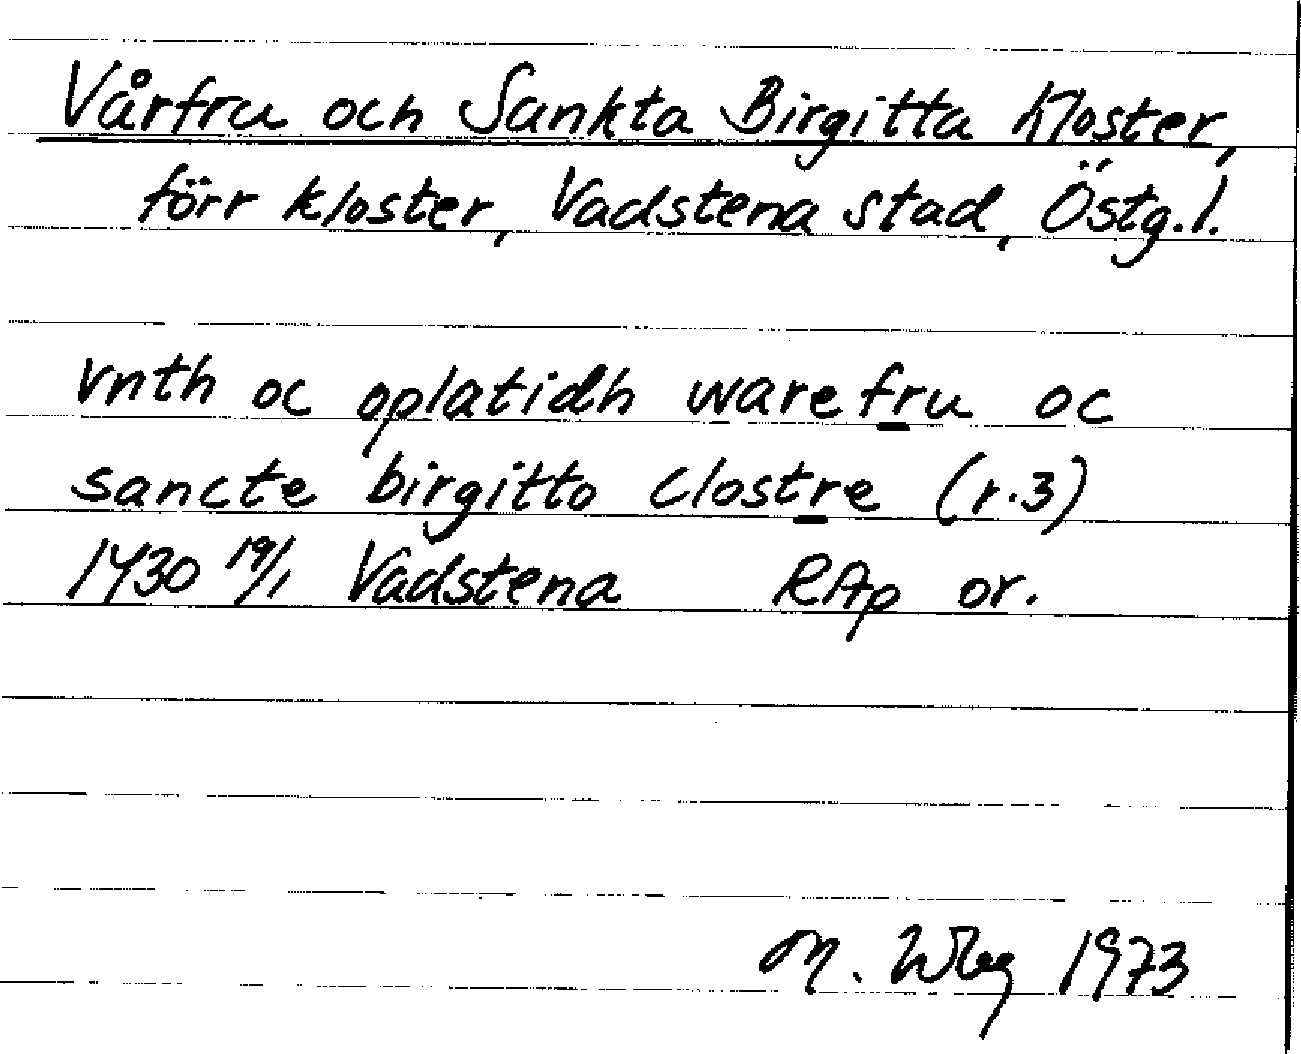 Vårfru och Sankta Birgitta Kloster,
förr kloster, Vadstena stad, Östg.l.
vnth oc oplatidh warefru oc
sancte birgitto clostre (r.3)
1430 19/1 Vadstena RAp or.
M. Wbg 1973